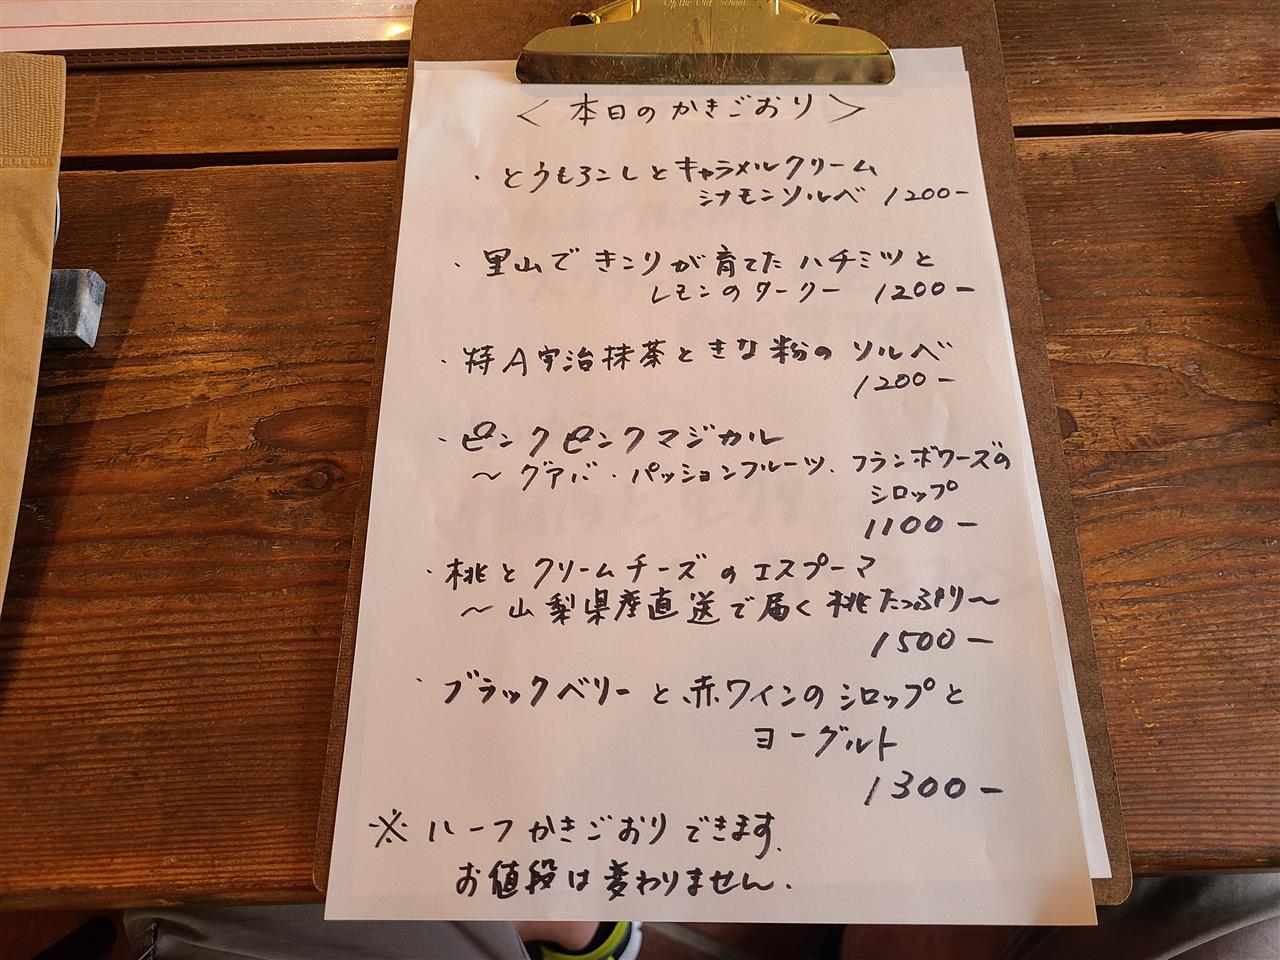 Of the Old School
＜本日のかきごおり＞
・とうもろこしとキャラメルクリーム
シナモンソルベ 1200-
・里山できこりが育てたハチミツと
レモンのクーリー 1200-
・特A宇治抹茶ときな粉のソルベ
1200-
・ピンクピンクマジカル
～グァバ・パッションフルーツ、フランボワーズの
シロップ
1100-
・桃とクリームチーズのエスプーマ
～山梨県産直送で届く桃たっぷり～
1500-
・ブラックベリーと赤ワインのシロップと
ヨーグルト
1300-
※ハーフかきごおりできます。
お値段は変わりません。